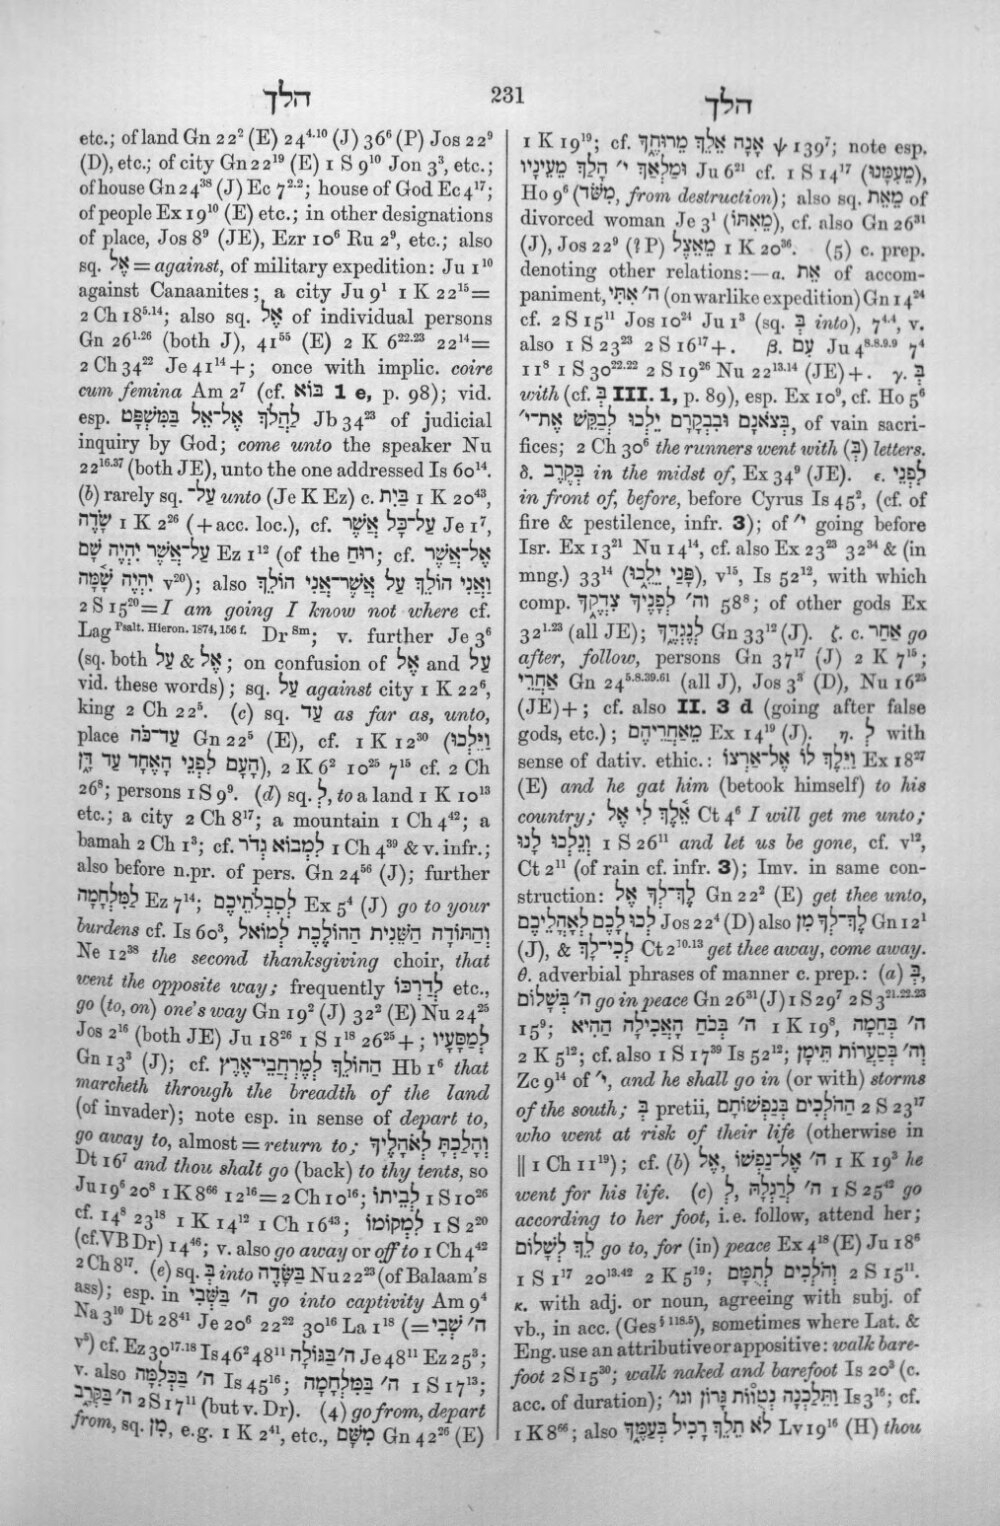 הלך 231 הלך
etc.; of land Gn 22² (E) 24⁴·¹⁰ (J) 36⁶ (P) Jos 22⁹
(D), etc.; of city Gn 22¹⁹ (E) 1 S 9¹⁰ Jon 3³, etc.;
of house Gn 24³⁸ (J) Ec 7²·²; house of God Ec 4¹⁷;
of people Ex 19¹⁰ (E) etc.; in other designations
of place, Jos 8⁹ (JE), Ezr 10⁶ Ru 2⁹, etc.; also
sq. אֶל = against, of military expedition: Ju 1¹⁰
against Canaanites; a city Ju 9¹ 1 K 22¹⁵=
2 Ch 18⁵·¹⁴; also sq. אֶל of individual persons
Gn 26¹·²⁶ (both J), 41⁵⁵ (E) 2 K 6²²·²³ 22¹⁴=
2 Ch 34²² Je 41¹⁴ +; once with implic. coire
cum femina Am 2⁷ (cf. בּוֹא 1 e, p. 98); vid.
esp. לַהֲלֹךְ אֶל־אֵל בַּמִּשְׁפָּט Jb 34²³ of judicial
inquiry by God; come unto the speaker Nu
22¹⁶·³⁷ (both JE), unto the one addressed Is 60¹⁴.
(b) rarely sq. עַל־ unto (Je K Ez) c. בַּיִת 1 K 20⁴³,
שָׂדֶה 1 K 2²⁶ (+ acc. loc.), cf. עַל־כָּל אֲשֶׁר Je 1⁷,
עַל־אֲשֶׁר יִהְיֶה שָׁם Ez 1¹² (of the רוּחַ; cf. אֶל־אֲשֶׁר
יִהְיֶה שָׁמָּה v²⁰); also וַאֲנִי הוֹלֵךְ עַל אֲשֶׁר־אֲנִי הוֹלֵךְ
2 S 15²⁰ = I am going I know not where cf.
Lag Psalt. Hieron. 1874, 156 f. Dr Sm; v. further Je 3⁶
(sq. both עַל & אֶל; on confusion of אֶל and עַל
vid. these words); sq. עַל against city 1 K 22⁶,
king 2 Ch 22⁵. (c) sq. עַד as far as, unto,
place עַד־כֹּה Gn 22⁵ (E), cf. 1 K 12³⁰ (וַיֵּלְכוּ
הָעָם לִפְנֵי הָאֶחָד עַד דָּן), 2 K 6² 10²⁵ 7¹⁵ cf. 2 Ch
26⁸; persons 1 S 9⁹. (d) sq. לְ, to a land 1 K 10¹³
etc.; a city 2 Ch 8¹⁷; a mountain 1 Ch 4⁴²; a
bamah 2 Ch 1³; cf. לִמְבוֹא גְדֹר 1 Ch 4³⁹ & v. infr.;
also before n.pr. of pers. Gn 24⁵⁶ (J); further
לַמִּלְחָמָה Ez 7¹⁴; לְסִבְלֹתֵיכֶם Ex 5⁴ (J) go to your
burdens cf. Is 60³, וְהַתּוֹדָה הַשֵּׁנִית הַהוֹלֶכֶת לְמוֹאל
Ne 12³⁸ the second thanksgiving choir, that
went the opposite way; frequently לְדַרְכּוֹ etc.,
go (to, on) one's way Gn 19² (J) 32² (E) Nu 24²⁵
Jos 2¹⁶ (both JE) Ju 18²⁶ 1 S 1¹⁸ 26²⁵ +; לְמַסָּעָיו
Gn 13³ (J); cf. הַהוֹלֵךְ לְמֶרְחֲבֵי־אֶרֶץ Hb 1⁶ that
marcheth through the breadth of the land
(of invader); note esp. in sense of depart to,
go away to, almost = return to; וְהָלַכְתָּ לְאֹהָלֶיךָ
Dt 16⁷ and thou shalt go (back) to thy tents, so
Ju 19⁶ 20⁸ 1 K 8⁶⁶ 12¹⁶ = 2 Ch 10¹⁶; לְבֵיתוֹ 1 S 10²⁶
cf. 14⁸ 23¹⁸ 1 K 14¹² 1 Ch 16⁴³; לִמְקוֹמוֹ 1 S 2²⁰
(cf. VB Dr) 14⁴⁶; v. also go away or off to 1 Ch 4⁴²
2 Ch 8¹⁷. (e) sq. בְּ into בַּשָּׂדֶה Nu 22²³ (of Balaam's
ass); esp. in ה׳ בַּשְּׁבִי go into captivity Am 9⁴
Na 3¹⁰ Dt 28⁴¹ Je 20⁶ 22²² 30¹⁶ La 1¹⁸ (= ה׳ שְׁבִי
v⁵) cf. Ez 30¹⁷·¹⁸ Is 46² 48¹¹ ה׳ בַּגּוֹלָה Je 48¹¹ Ez 25³;
v. also ה׳ בַּכְּלִמָּה Is 45¹⁶; ה׳ בַּמִּלְחָמָה 1 S 17¹³;
ה׳ בַּקְּרָב 2 S 17¹¹ (but v. Dr). (4) go from, depart
from, sq. מִן, e.g. 1 K 2⁴¹, etc., מִשָּׁם Gn 42²⁶ (E)
1 K 19¹⁹; cf. אָנָה אֵלֵךְ מֵרוּחֶךָ ψ 139⁷; note esp.
וּמַלְאַךְ י׳ הָלַךְ מֵעֵינָיו Ju 6²¹ cf. 1 S 14¹⁷ (מֵעִמָּנוּ),
Ho 9⁶ (מִשֹּׁד, from destruction); also sq. מֵאֵת of
divorced woman Je 3¹ (מֵאִתּוֹ), cf. also Gn 26³¹
(J), Jos 22⁹ (? P) מֵאֵצֶל 1 K 20³⁶. (5) c. prep.
denoting other relations:—a. אֵת of accom-
paniment, ה׳ אִתִּי (on warlike expedition) Gn 14²⁴
cf. 2 S 15¹¹ Jos 10²⁴ Ju 1³ (sq. בְּ into), 7⁴·⁴, v.
also 1 S 23²³ 2 S 16¹⁷ +. β. עִם Ju 4⁸·⁸·⁹·⁹ 7⁴
11⁸ 1 S 30²²·²² 2 S 19²⁶ Nu 22¹³·¹⁴ (JE) +. γ. בְּ
with (cf. בְּ III. 1, p. 89), esp. Ex 10⁹, cf. Ho 5⁶
בְּצֹאנָם וּבִבְקָרָם יֵלְכוּ לְבַקֵּשׁ אֶת־י׳, of vain sacri-
fices; 2 Ch 30⁶ the runners went with (בְּ) letters.
δ. בְּקֶרֶב in the midst of, Ex 34⁹ (JE). ε. לִפְנֵי
in front of, before, before Cyrus Is 45², (cf. of
fire & pestilence, infr. 3); of י׳ going before
Isr. Ex 13²¹ Nu 14¹⁴, cf. also Ex 23²³ 32³⁴ & (in
mng.) 33¹⁴ (פָּנַי יֵלֵכוּ), v¹⁵, Is 52¹², with which
comp. וה׳ לְפָנֶיךָ צִדְקֶךָ 58⁸; of other gods Ex
32¹·²³ (all JE); לְנֶגְדֶּךָ Gn 33¹² (J). ζ. c. אַחַר go
after, follow, persons Gn 37¹⁷ (J) 2 K 7¹⁵;
אַחֲרֵי Gn 24⁵·⁸·³⁹·⁶¹ (all J), Jos 3³ (D), Nu 16²⁵
(JE) +; cf. also II. 3 d (going after false
gods, etc.); מֵאַחֲרֵיהֶם Ex 14¹⁹ (J). η. לְ with
sense of dativ. ethic.: וַיֵּלֶךְ לוֹ אֶל־אַרְצוֹ Ex 18²⁷
(E) and he gat him (betook himself) to his
country; אֵלֶךְ לִי אֶל Ct 4⁶ I will get me unto;
וְנֵלְכוּ לָנוּ 1 S 26¹¹ and let us be gone, cf. v¹²,
Ct 2¹¹ (of rain cf. infr. 3); Imv. in same con-
struction: לֶךְ־לְךָ אֶל Gn 22² (E) get thee unto,
לְכוּ לָכֶם לְאָהֳלֵיכֶם Jos 22⁴ (D) also לֶךְ־לְךָ מִן Gn 12¹
(J), & לְכִי־לָךְ Ct 2¹⁰·¹³ get thee away, come away.
θ. adverbial phrases of manner c. prep.: (a) בְּ,
ה׳ בְּשָׁלוֹם go in peace Gn 26³¹ (J) 1 S 29⁷ 2 S 3²¹·²²·²³
15⁹; ה׳ בְּכֹחַ הָאֲכִילָה הַהִיא 1 K 19⁸, ה׳ בְּחֵמָה
2 K 5¹²; cf. also 1 S 17³⁹ Is 52¹²; וְה׳ בְּסַעֲרוֹת תֵּימָן
Zc 9¹⁴ of י׳, and he shall go in (or with) storms
of the south; בְּ pretii, הַהֹלְכִים בְּנַפְשׁוֹתָם 2 S 23¹⁷
who went at risk of their life (otherwise in
‖ 1 Ch 11¹⁹); cf. (b) אֶל, ה׳ אֶל־נַפְשׁוֹ 1 K 19³ he
went for his life. (c) לְ, ה׳ לְרַגְלָהּ 1 S 25⁴² go
according to her foot, i.e. follow, attend her;
לֵךְ לְשָׁלוֹם go to, for (in) peace Ex 4¹⁸ (E) Ju 18⁶
1 S 1¹⁷ 20¹³·⁴² 2 K 5¹⁹; וְהֹלְכִים לְתֻמָּם 2 S 15¹¹.
κ. with adj. or noun, agreeing with subj. of
vb., in acc. (Ges § 118.5), sometimes where Lat. &
Eng. use an attributive or appositive: walk bare-
foot 2 S 15³⁰; walk naked and barefoot Is 20³ (c.
acc. of duration); וַתֵּלַכְנָה נְטוּוֹת גָּרוֹן וגו׳ Is 3¹⁶; cf.
1 K 8⁶⁶; also לֹא תֵלֵךְ רָכִיל בְּעַמֶּךָ Lv 19¹⁶ (H) thou